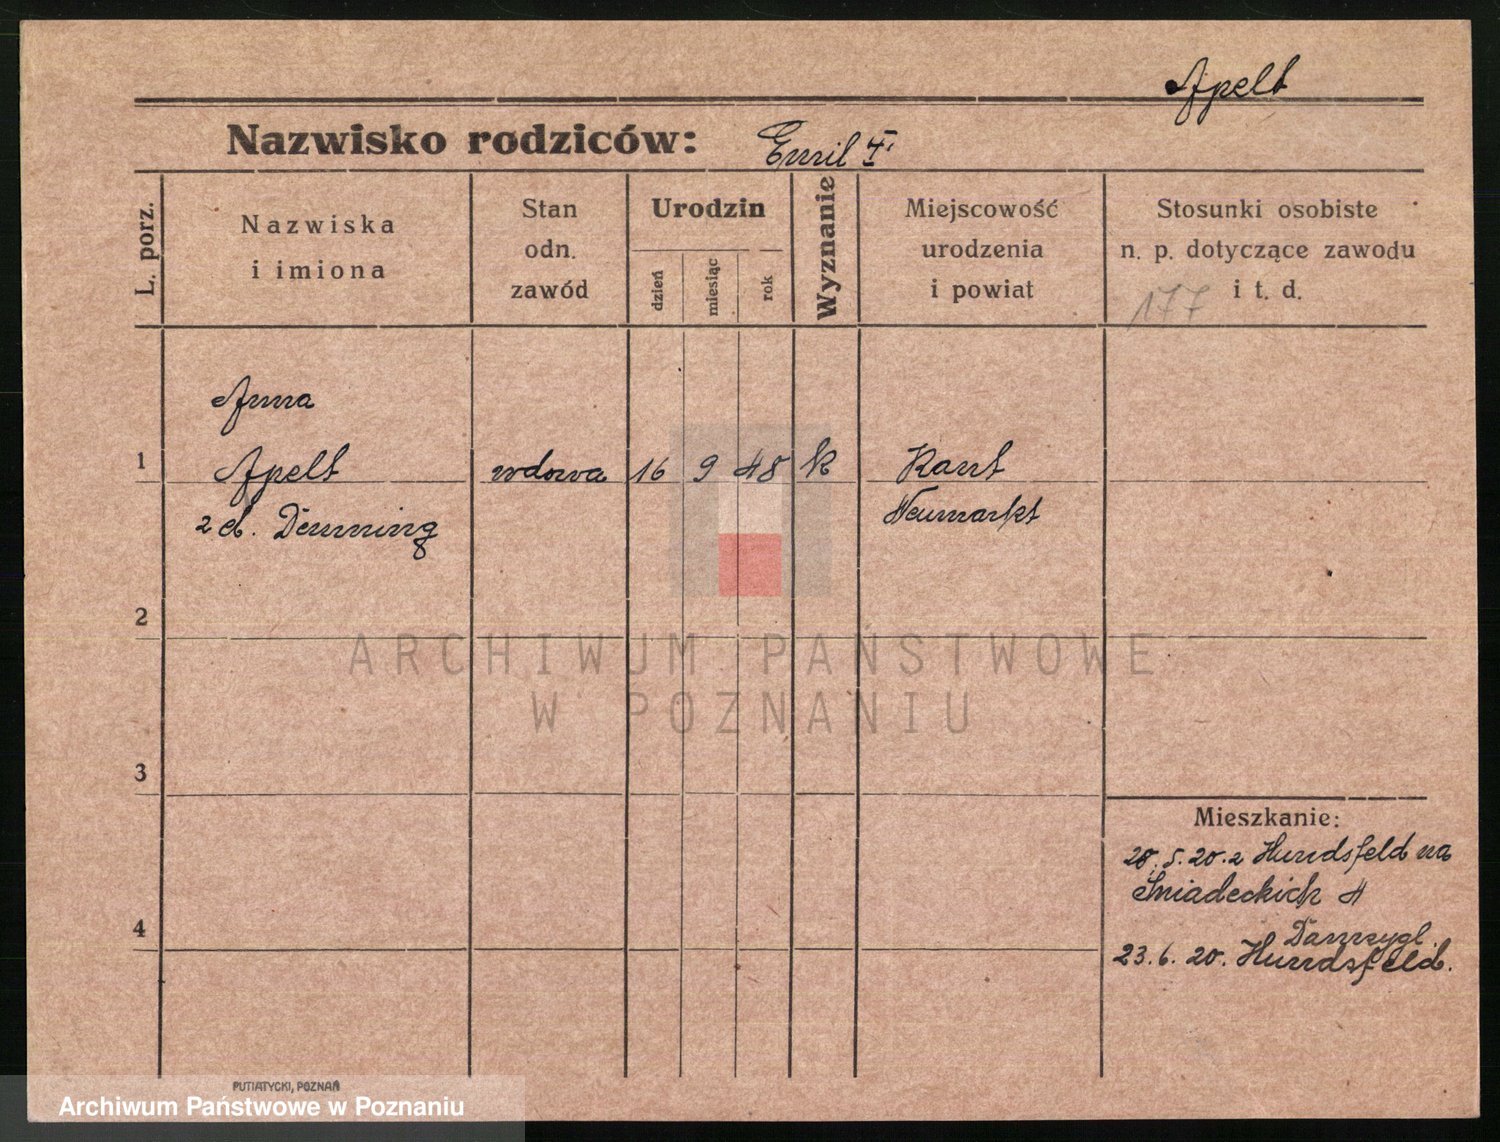 Apelt
Nazwisko rodziców: Emil
L. porz.
Nazwiska
i imiona
Stan
odn.
zawód
Urodzin
dzień
miesiąc
rok
Wyznanie
Miejscowość
urodzenia
i powiat
Stosunki osobiste
n. p. dotyczące zawodu
i t. d.
177
Anna
1 Apelt wdowa 16 9 48 k Kant
Neumarkt
z d. Demming
2
3
4
Mieszkanie:
28.5.20. z Hundsfeld na
Śniadeckich
23.6.20. Hundsfeld.
ARCHIWUM PAŃSTWOWE
W POZNANIU
PUTIATYCKI, POZNAŃ
Archiwum Państwowe w Poznaniu